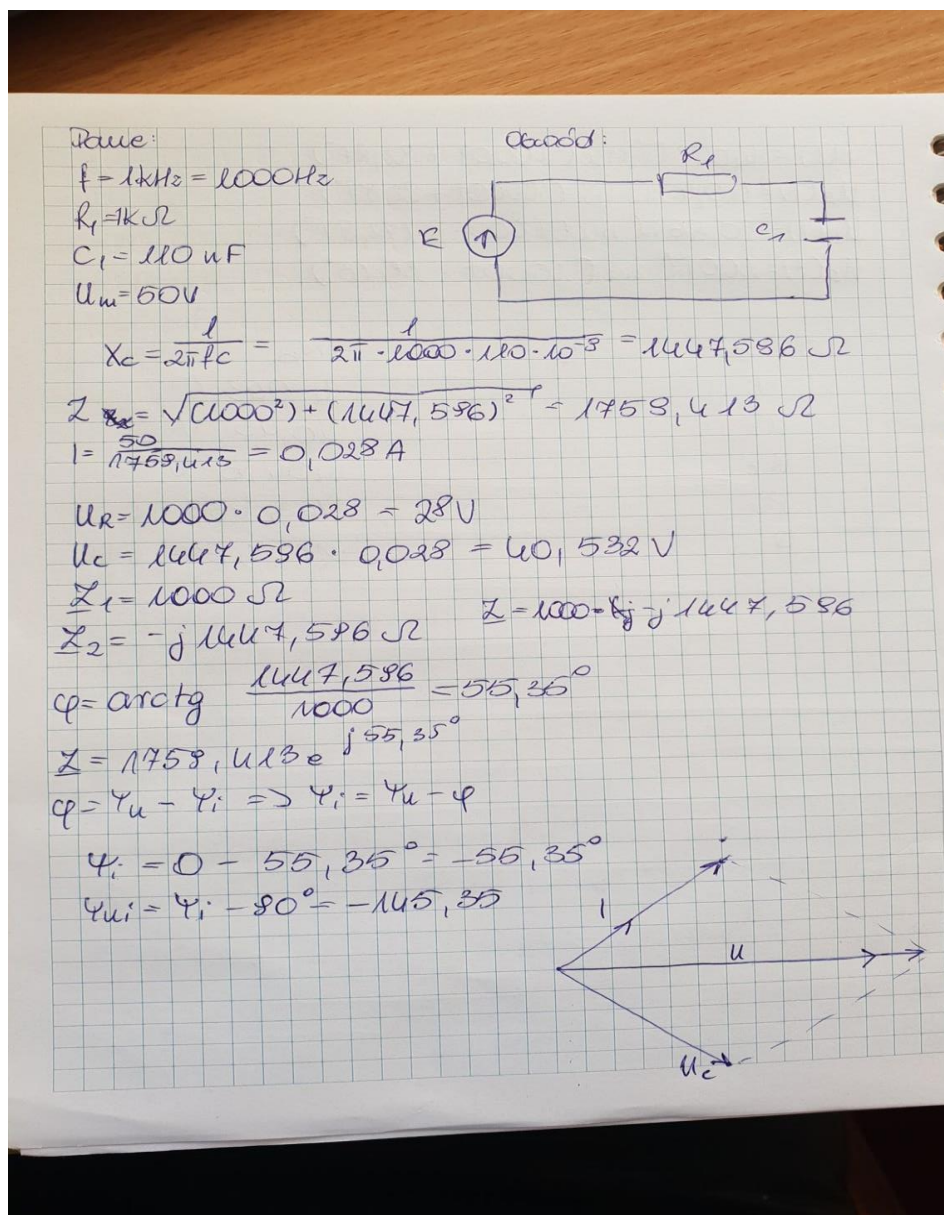 Dane:
Obwód:
f = 1kHz = 1000Hz
R₁
R₁=1kΩ
E
C₁
C₁ = 110 nF
Um = 50V
Xc = 1/2πfc = 1/2π·1000·110·10⁻⁹ = 1447,596 Ω
Z = √(1000²) + (1447,596)² = 1759,413 Ω
I = 50/1759,413 = 0,028 A
UR = 1000 · 0,028 = 28V
Uc = 1447,596 · 0,028 = 40,532 V
Z₁ = 1000 Ω
Z = 1000 - j 1447,596
Z₂ = -j 1447,596 Ω
φ = arctg 1447,596/1000 = 55,35°
Z = 1759,413 e j 55,35°
φ = Ψu - Ψi => Ψi = Ψu - φ
Ψi = 0 - 55,35° = -55,35°
Ψui = Ψi - 90° = -145,35
I
U
Uc